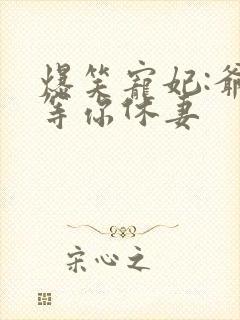 爆笑宠妃:爺
等你休妻
宋心之